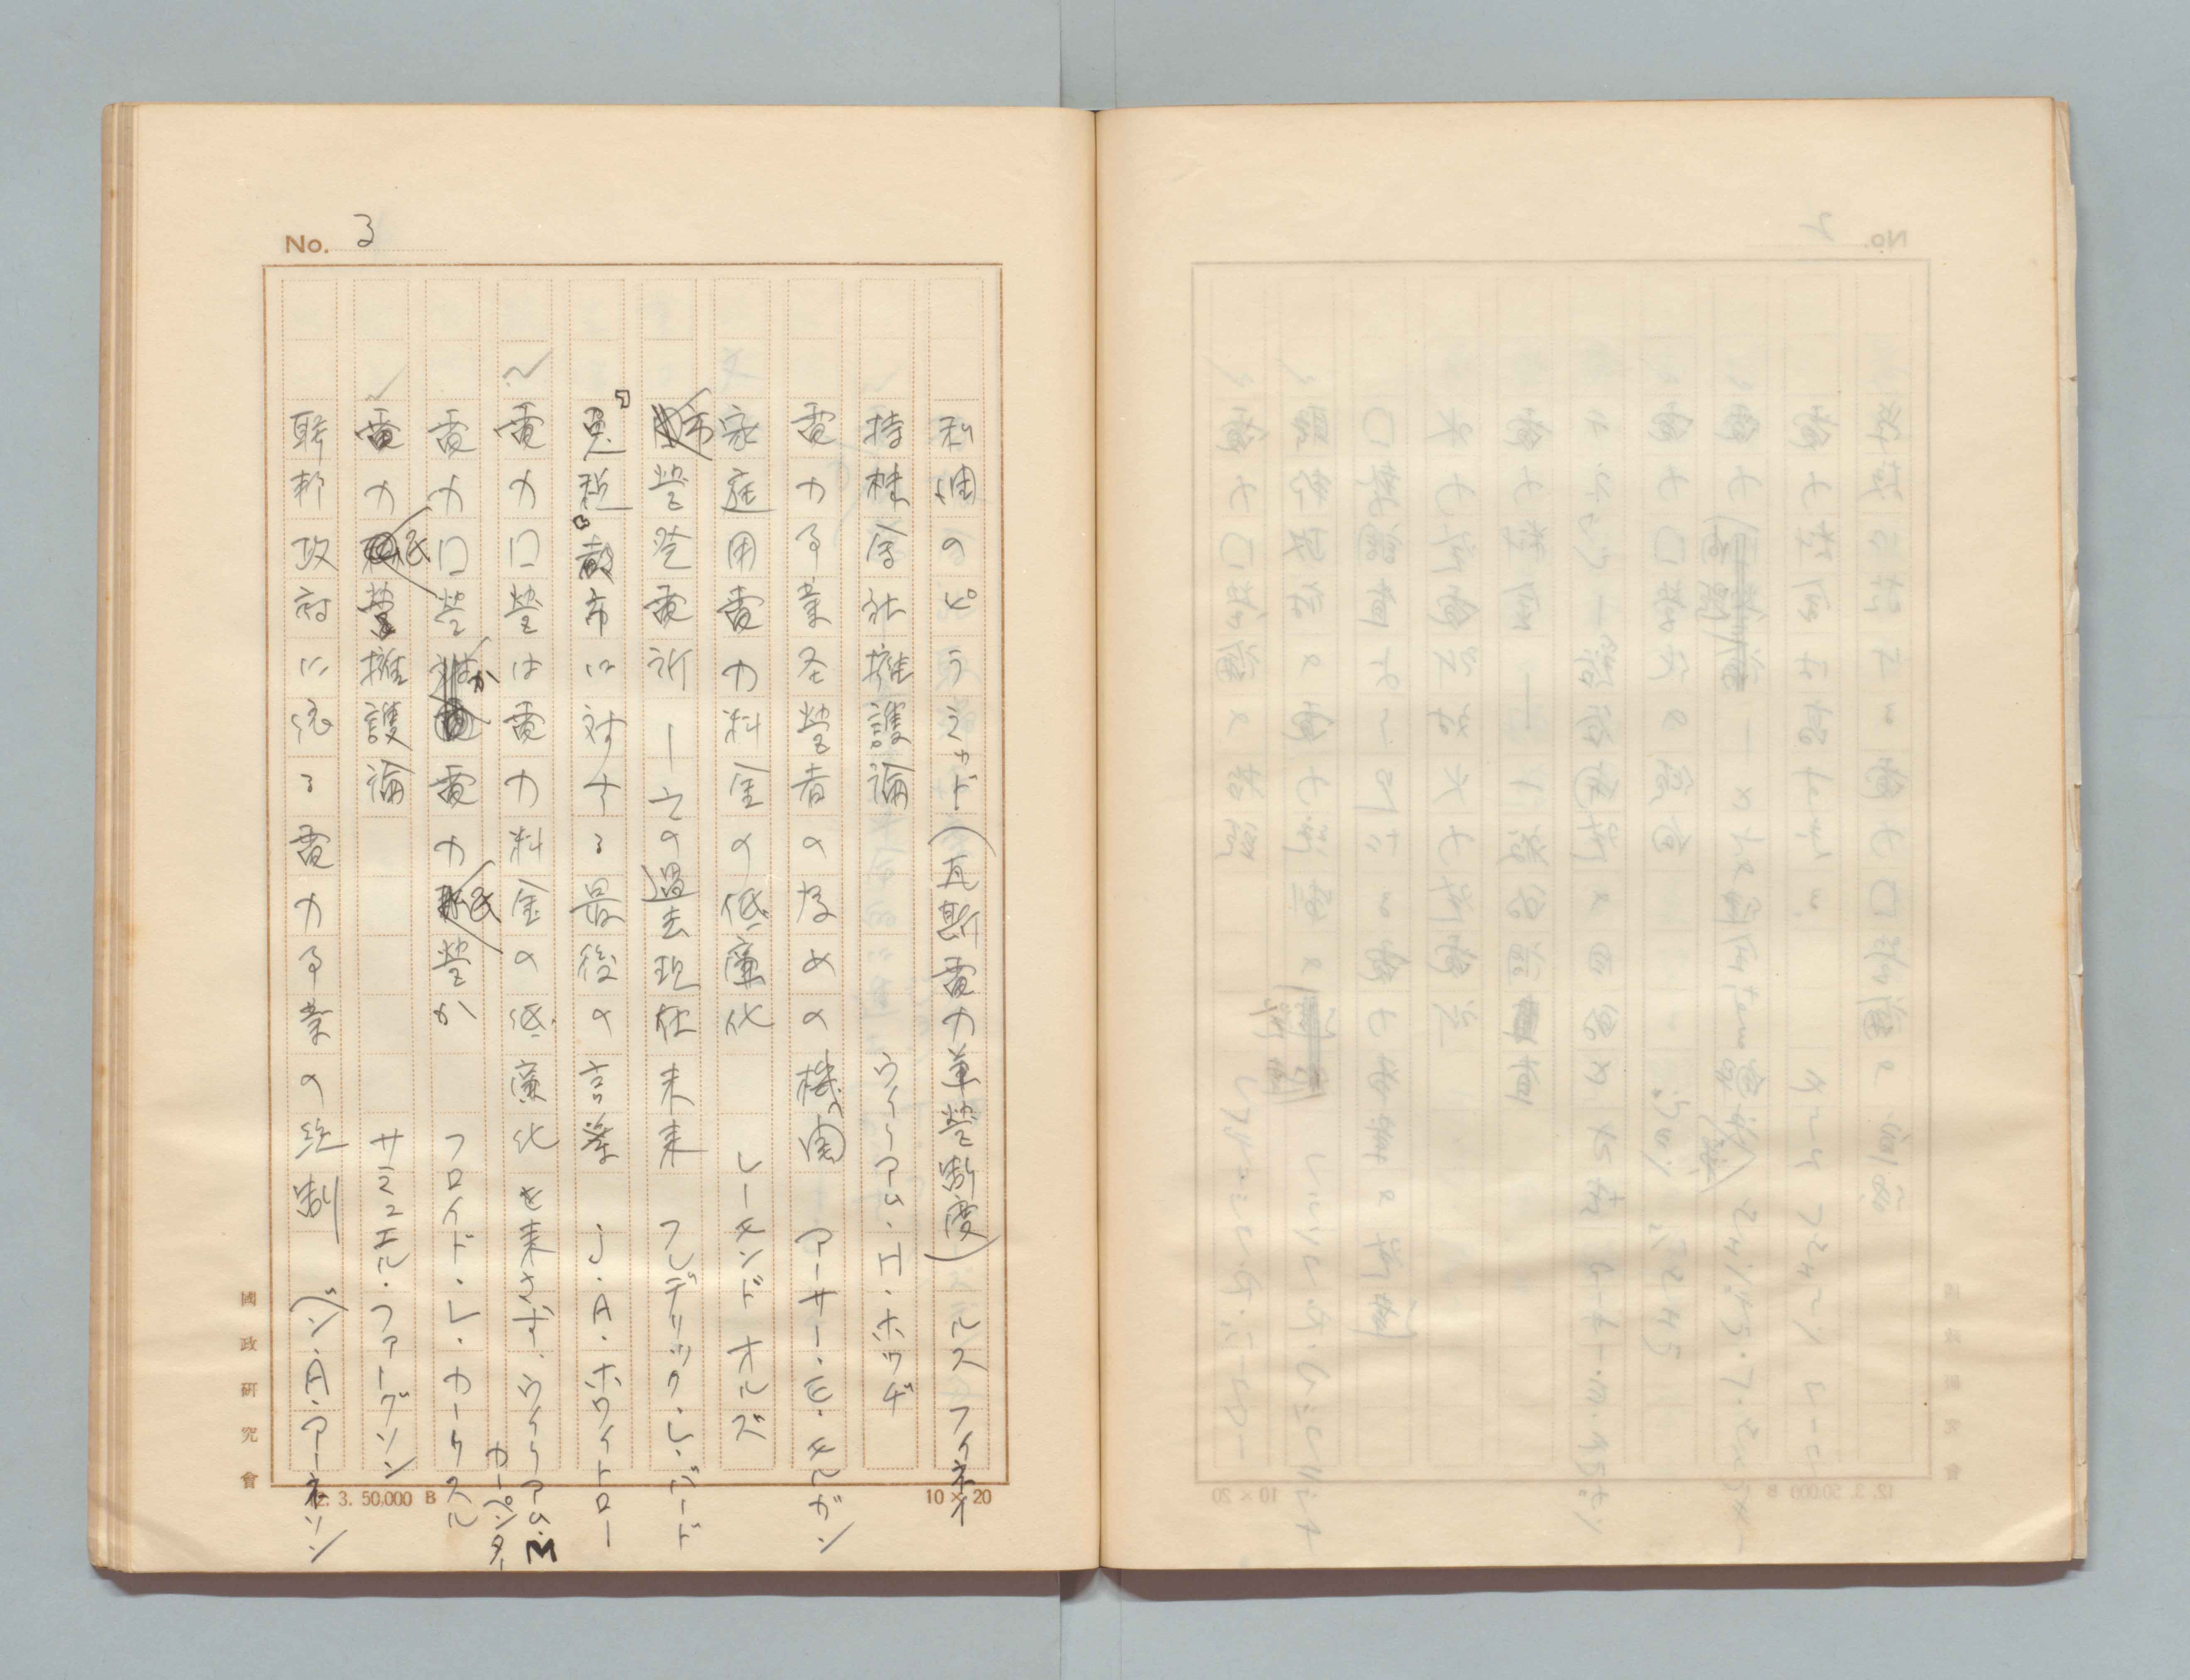 No. 3
利潤のピラミッド(瓦斯電力単営制度)エルスフイネイ
持株会社擁護論 ウィリアム・H・ホッヂ
電力事業経営者の為めの機関 アーサー・E・モルガン
家庭用電力料金の低廉化 レーモンド オルズ
市営発電所―その過去現在未来 フレデリック・L・バード
「免税」都市に対する最後の言挙 J・A・ホワイトロー
電力国営は電力料金の低廉化を来さず、ウィリアム・M カーペンター
電力国営か電力民営か フロイド・L・カーリスル
電力民営擁護論 サミュエル・ファーグソン
聯邦政府に依る電力事業の統制 ベン・A・アーネソン
國政研究會
12. 3. 50,000 B
10×20